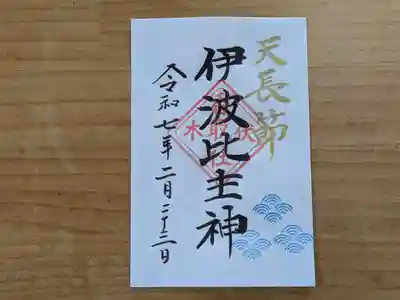 天長節
伊波比主神
令和七年二月二十三日